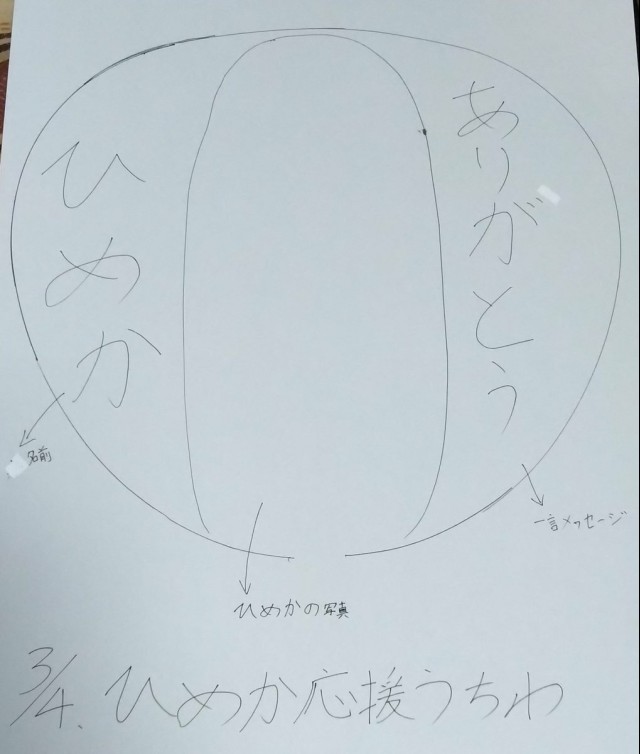 ひめか
ありがとう
名前
一言メッセージ
ひめかの写真
3/4. ひめか応援うちわ